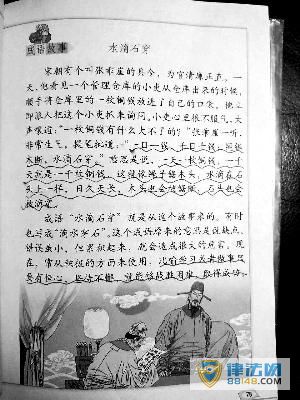 成语故事
水滴石穿
宋朝有个叫张乖崖的县令，为官清廉正直。一
天，他看见一个管理仓库的小吏从仓库出来的时候，
顺手将仓库里的一枚铜钱放进了自己的口袋。他立
即派人把这个小吏抓来询问。小吏心里很不服气，大
声嚷道：“一枚铜钱有什么大不了的？”张乖崖一听，
非常生气，提笔批道：“一日一钱，千日千钱，绳锯
木断，水滴石穿。”意思是说，一天一枚铜钱，一千
天就是一千枚铜钱。这就像绳子锯木头，水滴在石
头上一样，日久天长，木头也会被锯断，石头也会
被滴穿。
成语“水滴石穿”就是从这个故事来的。有时
也写成“滴水穿石”。这个成语原来的意思是说缺点、
错误虽小，但累积起来，就会造成很大的危害。现
在，常从积极的方面来使用，
要有恒心，坚持不懈，就能
取得成功。
75
律法网
88148.com